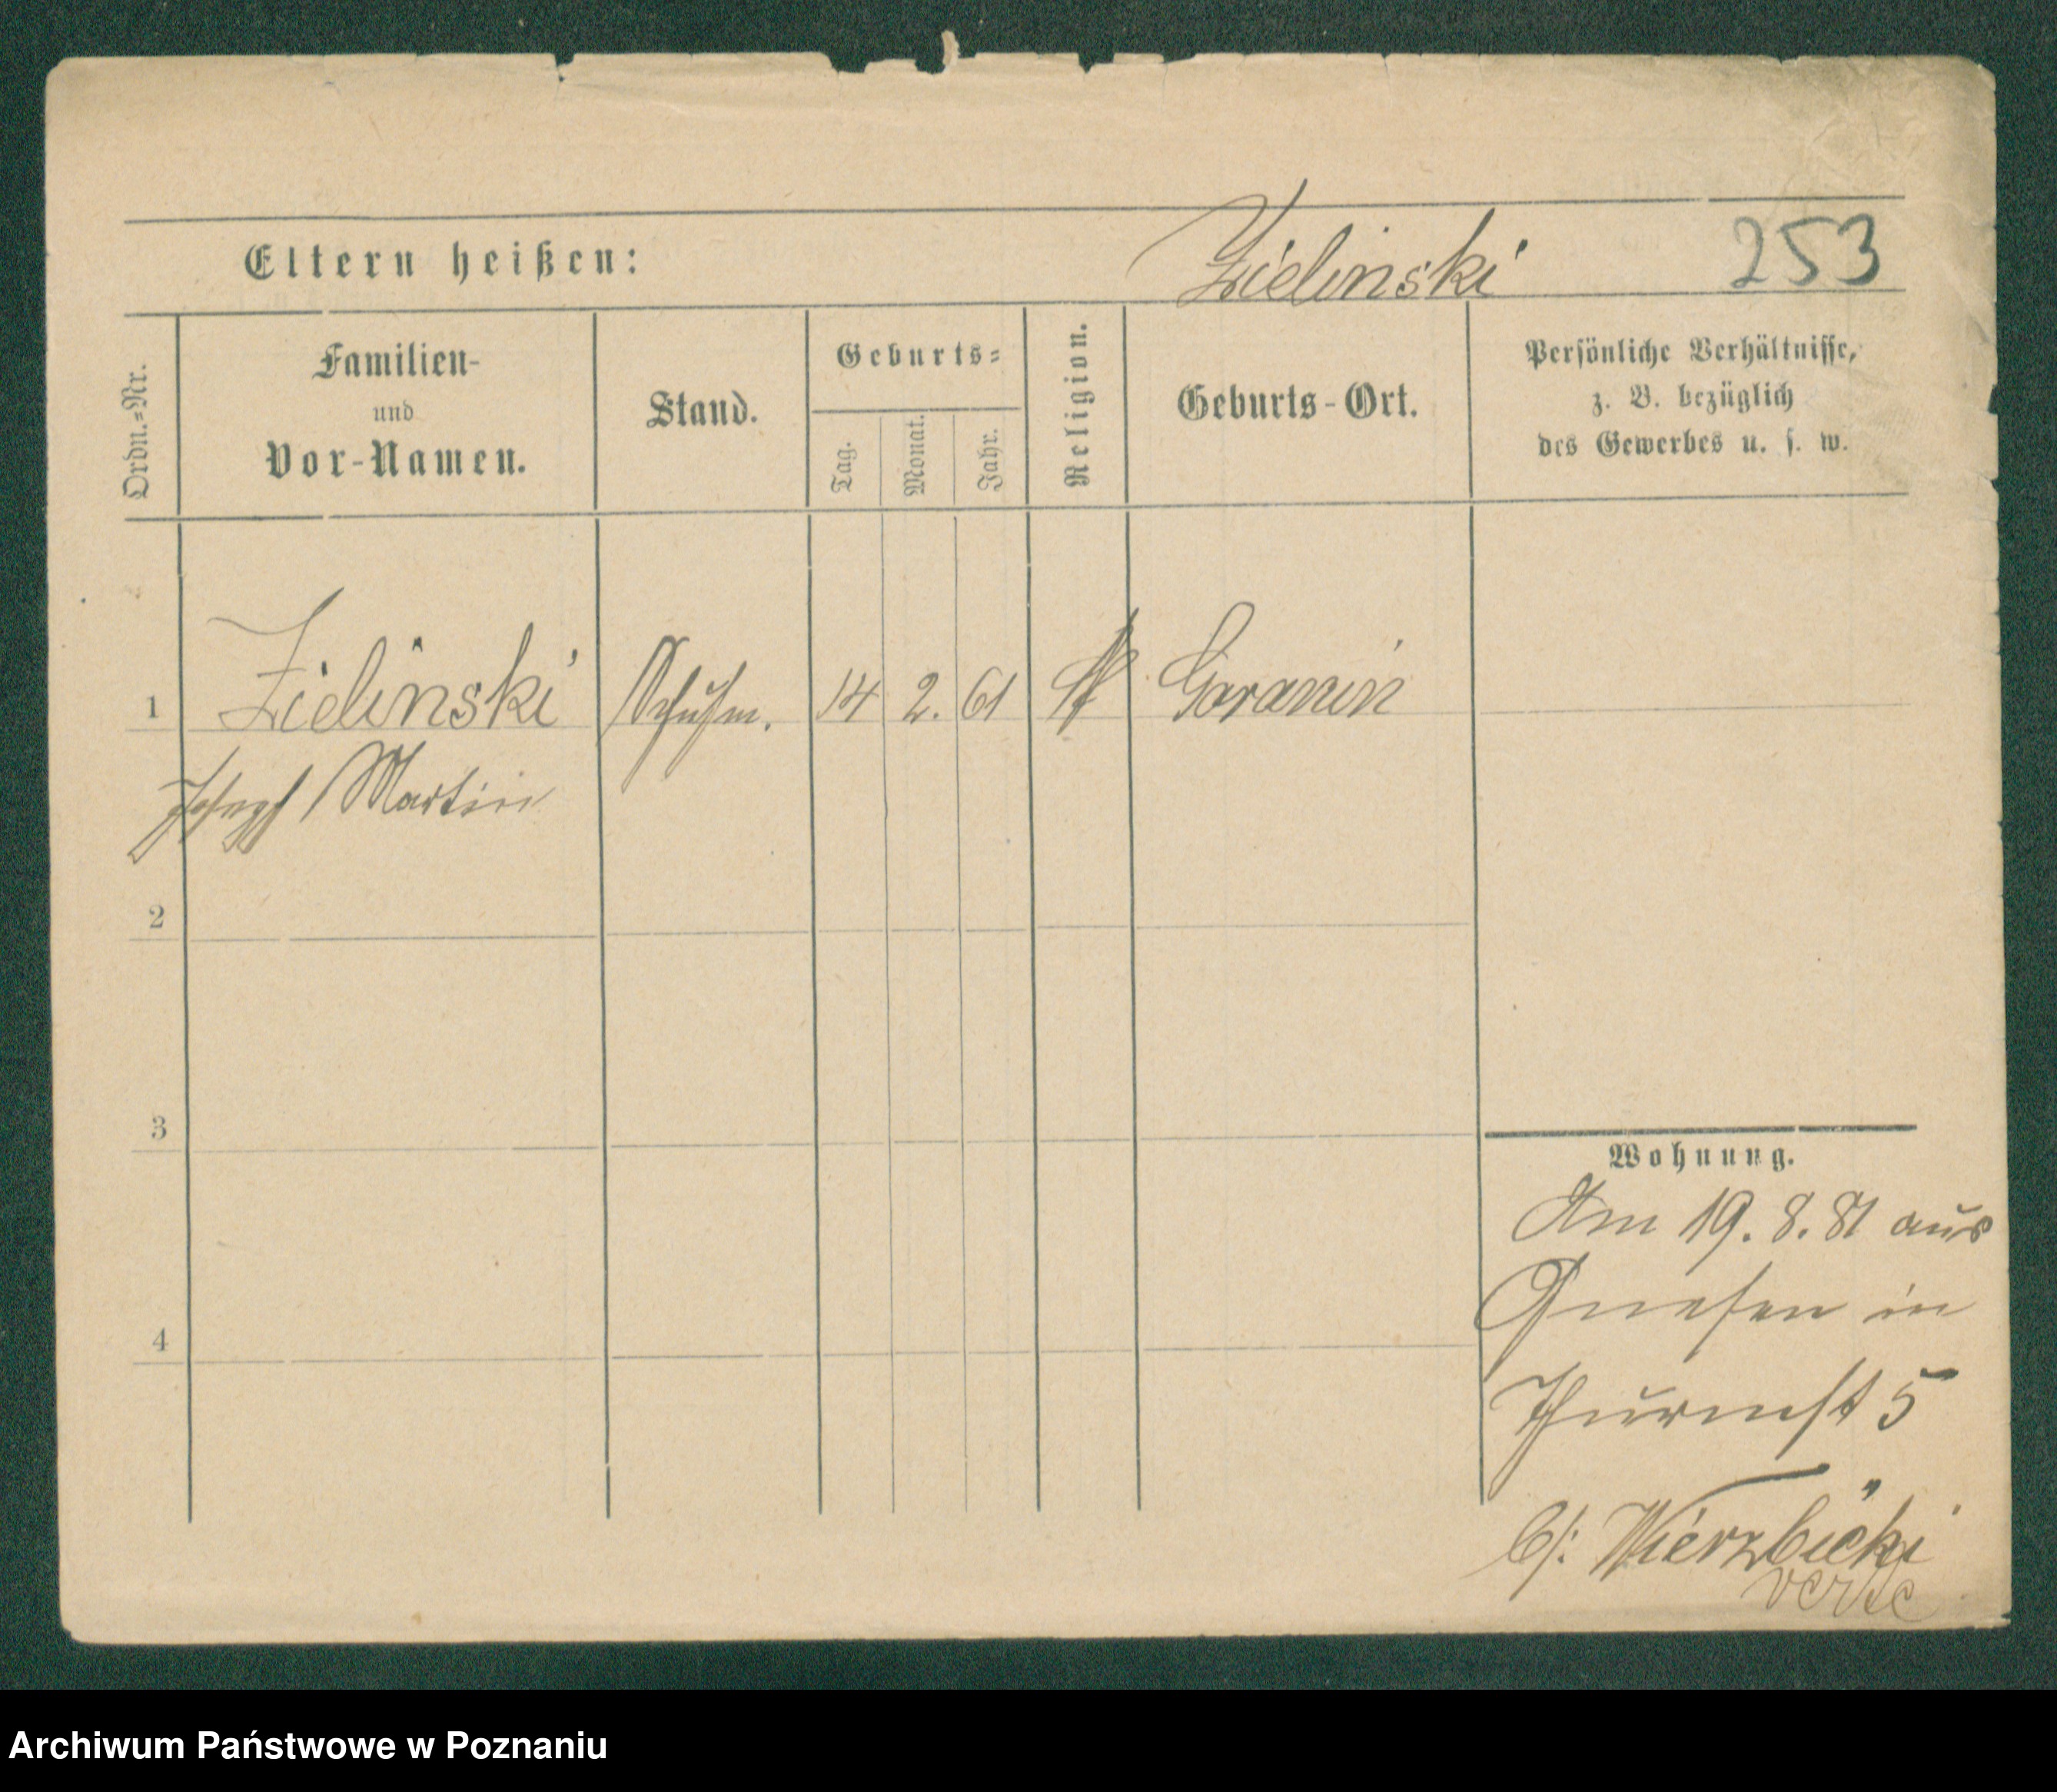 Zielinski 253
Eltern heißen:
Ordn.=Nr.
Familien-
und
Vor-Namen.
Stand.
Geburts=
Tag.
Monat.
Jahr.
Religion.
Geburts-Ort.
Persönliche Verhältnisse,
z. B. bezüglich
des Gewerbes u. s. w.
1 Zielinski Schuhm. 14 2. 61 Goranin
Joseph Martin
2
3
4
Wohnung.
Am 19. 8. 81 aus
Gnesen in
Thurmst 5
b/: Wierzbicki
verte
Archiwum Państwowe w Poznaniu